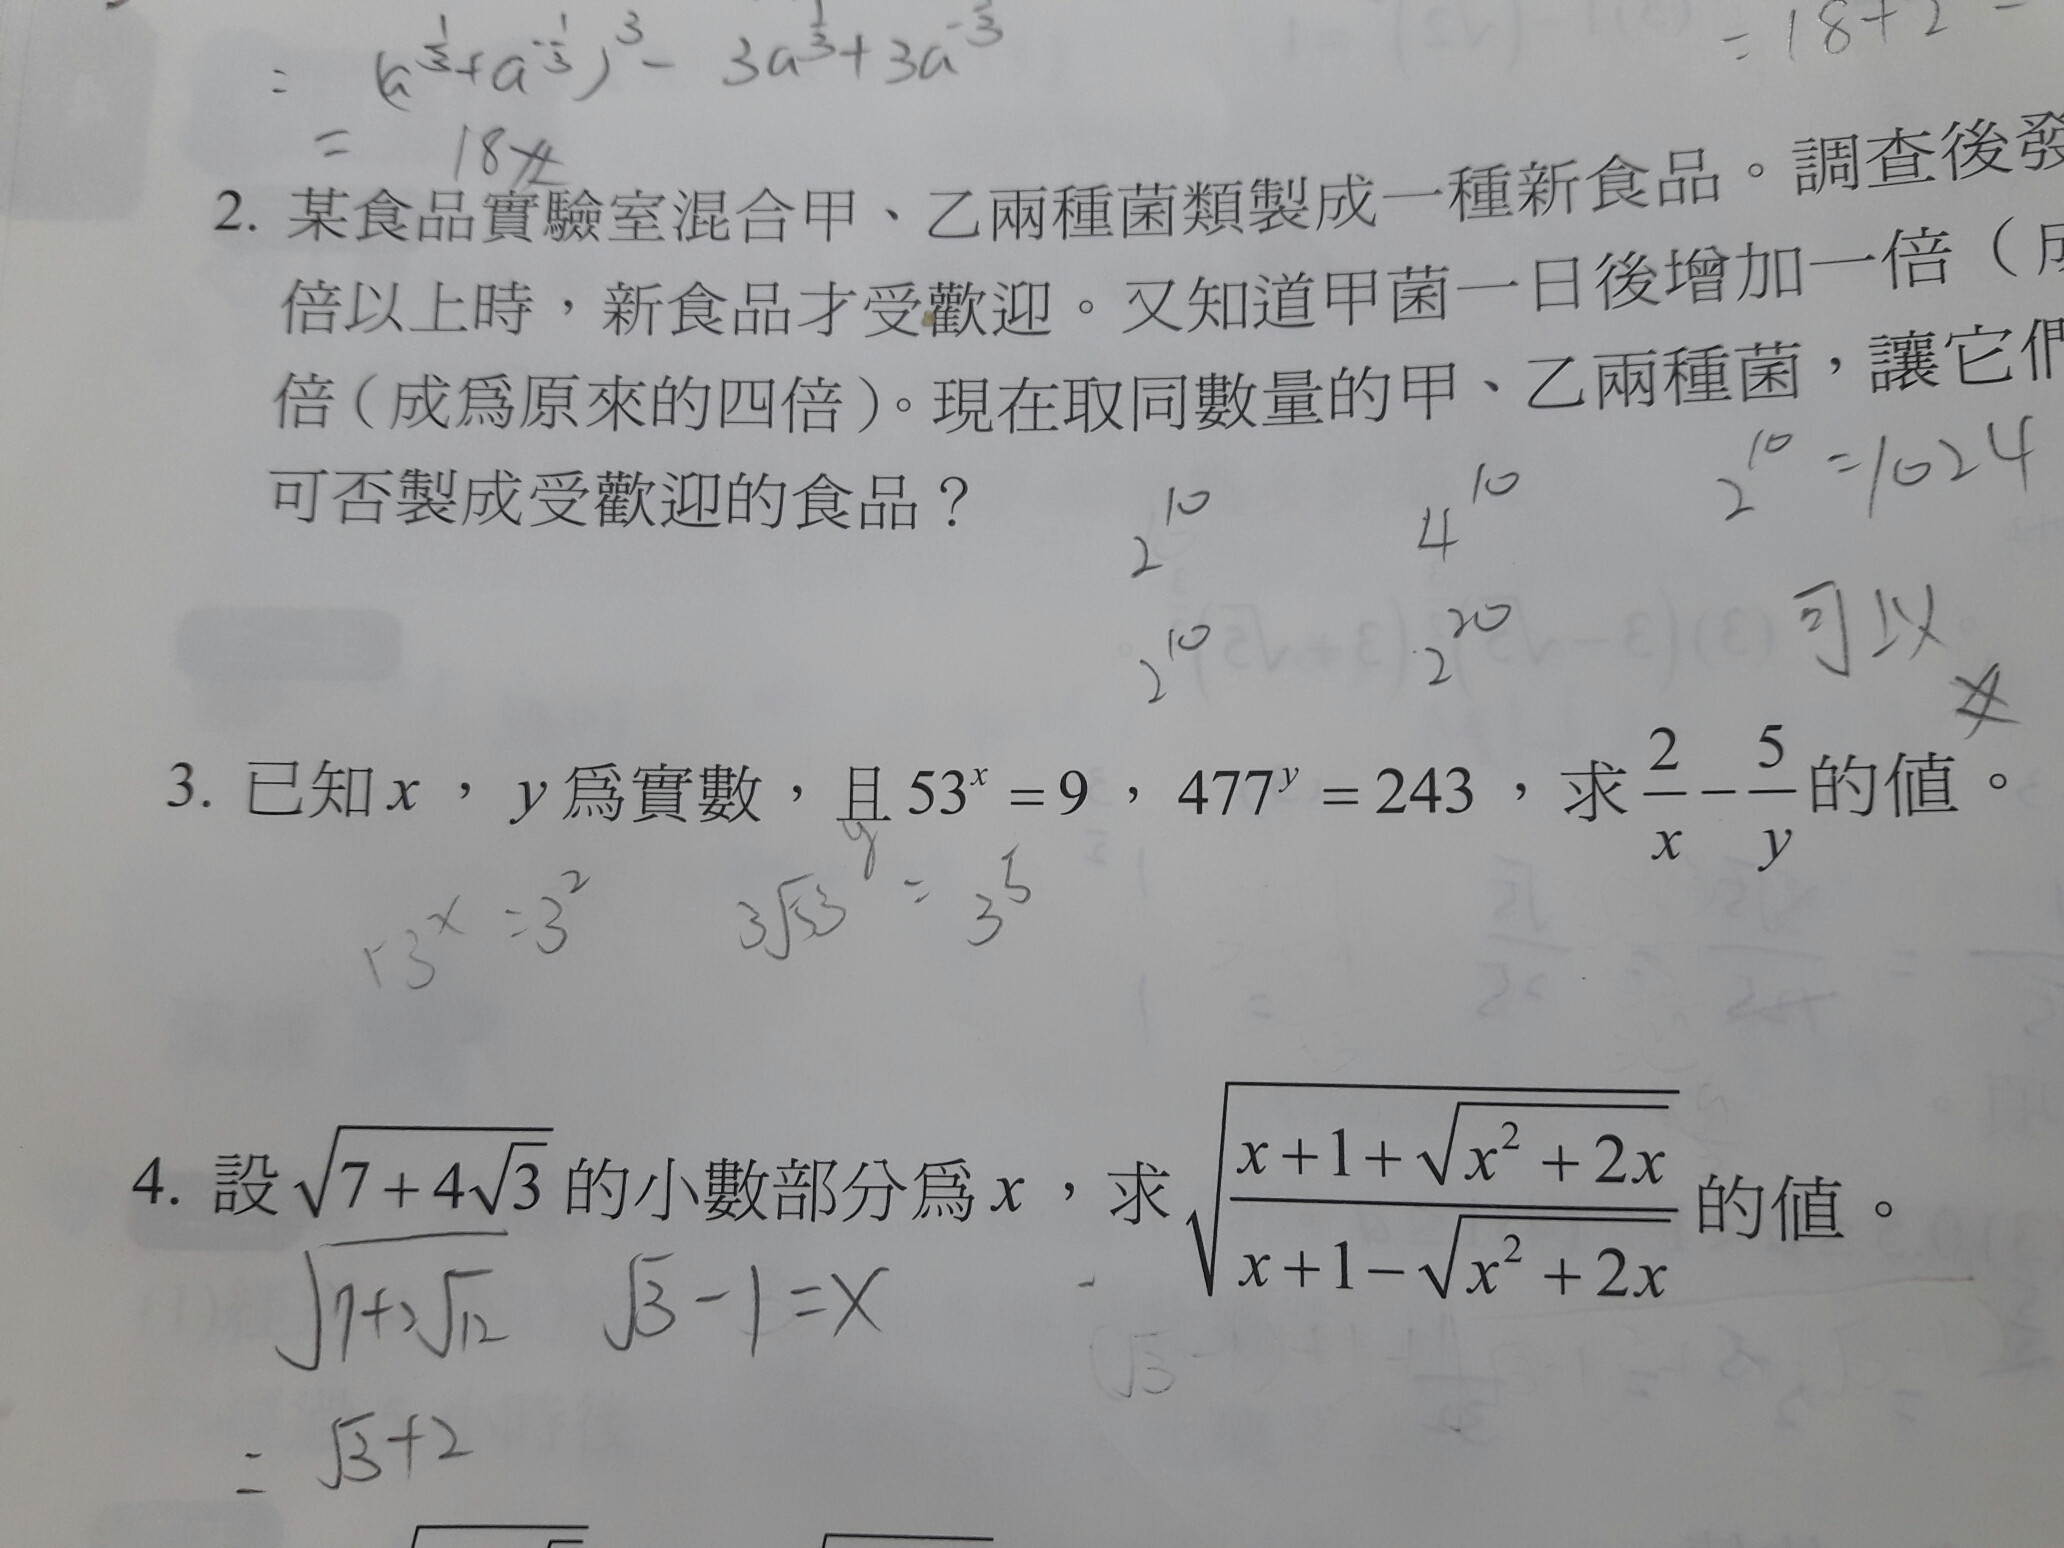 = (a^{1/3}+a^{-1/3})^3 - 3a^{1/3}+3a^{-1/3}
= 18+2 -
= 18
2. 某食品實驗室混合甲、乙兩種菌類製成一種新食品。調查後發
倍以上時，新食品才受歡迎。又知道甲菌一日後增加一倍（成
倍（成為原來的四倍）。現在取同數量的甲、乙兩種菌，讓它們
可否製成受歡迎的食品？
2^{10} 4^{10} 2^{10} =1024
2^{10} 2^{20} 可以
3. 已知 x ， y 為實數，且 53^x = 9 ， 477^y = 243 ，求 2/x − 5/y 的值。
53^x = 3^2 3√53^y = 3^5
4. 設 √(7+4√3) 的小數部分為 x ，求 √((x+1+√(x²+2x))/(x+1−√(x²+2x))) 的值。
√(7+2√12) √3 - 1 = x
= √3+2